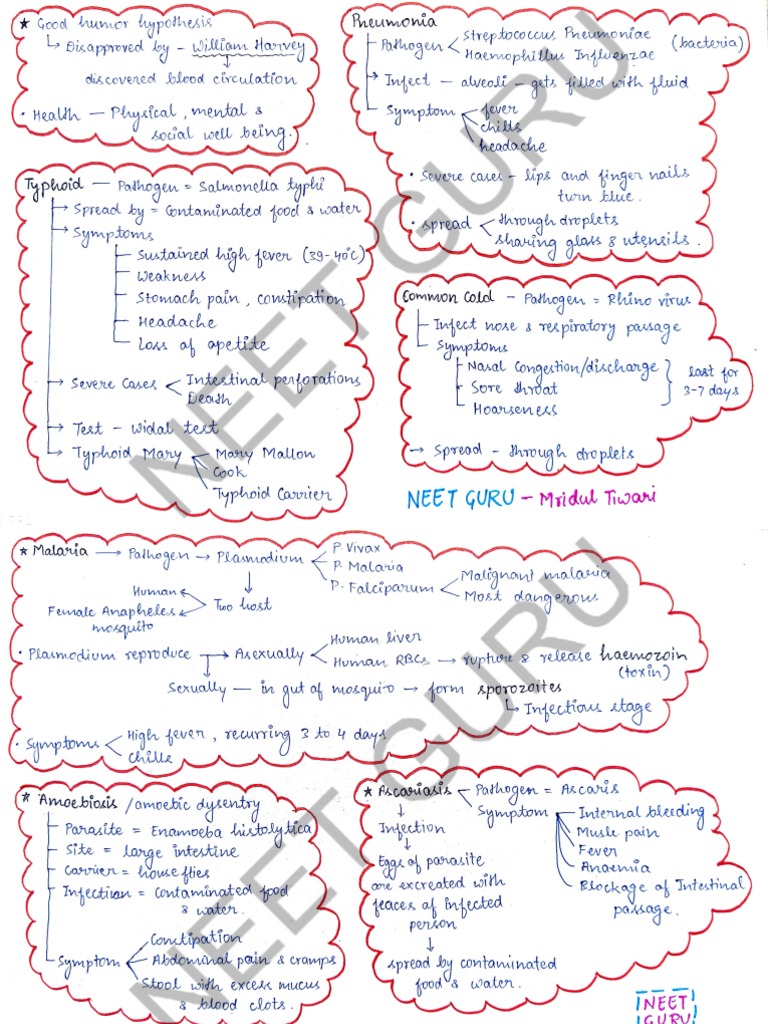 ★ Good humor hypothesis
↳ Disapproved by - William Harvey
↓
discovered blood circulation
• Health — Physical, mental &
social well being.
Pneumonia
Pathogen < Streptococcus Pneumoniae
Haemophillus Influenzae (bacteria)
→ Infect — alveoli - gets filled with fluid
Symptom < fever
chills
headache
• Severe cases - lips and finger nails
turn blue.
• spread < through droplets
sharing glass & utensils.
Typhoid — Pathogen = Salmonella typhi
→ Spread by = Contaminated food & water
→ Symptoms
Sustained high fever (39-40°C)
Weakness
Stomach pain, constipation
Headache
Loss of apetite
→ Severe Cases < Intestinal perforations
Death
→ Test - Widal test
→ Typhoid Mary
Mary Mallon
Cook
Typhoid Carrier
Common Cold - Pathogen = Rhino virus
Infect nose & respiratory passage
Symptoms
Nasal Congestion/discharge
Sore throat
Hoarseness
} last for
3-7 days
→ Spread - through droplets
NEET GURU - Mridul Tiwari
★ Malaria → Pathogen → Plasmodium
P. Vivax
P. Malaria
P. Falciparum < Malignant malania
Most dangerous
↓
Two host
Human
Female Anapheles
mosquito
• Plasmodium reproduce → Asexually < Human liver
Human RBCs → rupture & release haemozoin
(toxin)
Sexually — in gut of mosquito → form sporozoites
↳ Infectious stage
• Symptoms < High fever, recurring 3 to 4 days
Chills
★ Amoebiosis /amoebic dysentry
Parasite = Enamoeba histolytica
Site = large intestine
Carrier = house flies
Infection = Contaminated food
& water.
Symptom
Constipation
Abdominal pain & cramps
Stool with excess mucus
& blood clots.
★ Ascariasis < Pathogen = Ascaris
Symptom
Internal bleeding
Muscle pain
Fever
Anaemia
Blockage of Intestinal
passage.
↓
Infection
↓
Eggs of parasite
are excreated with
feaces of infected
person
↓
spread by contaminated
food & water.
NEET
GURU
NEET GURU
NEET GURU